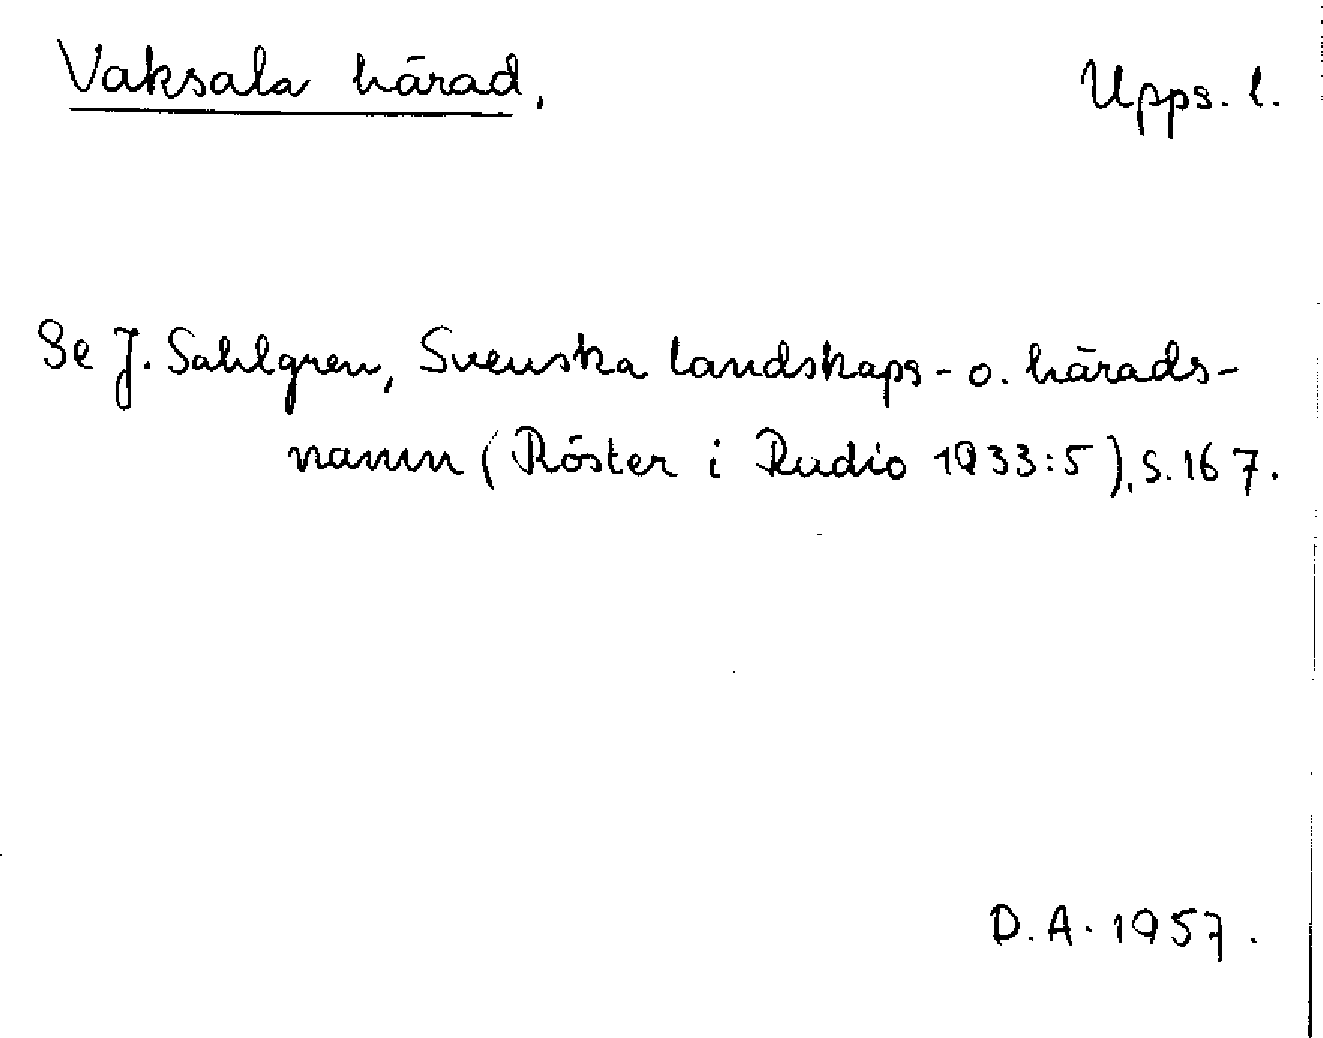 Vaksala härad, Upps. l.
Se J. Sahlgren, Svenska landskaps- o. härads-
namn (Röster i Radio 1933:5), s. 167.
D.A. 1957.